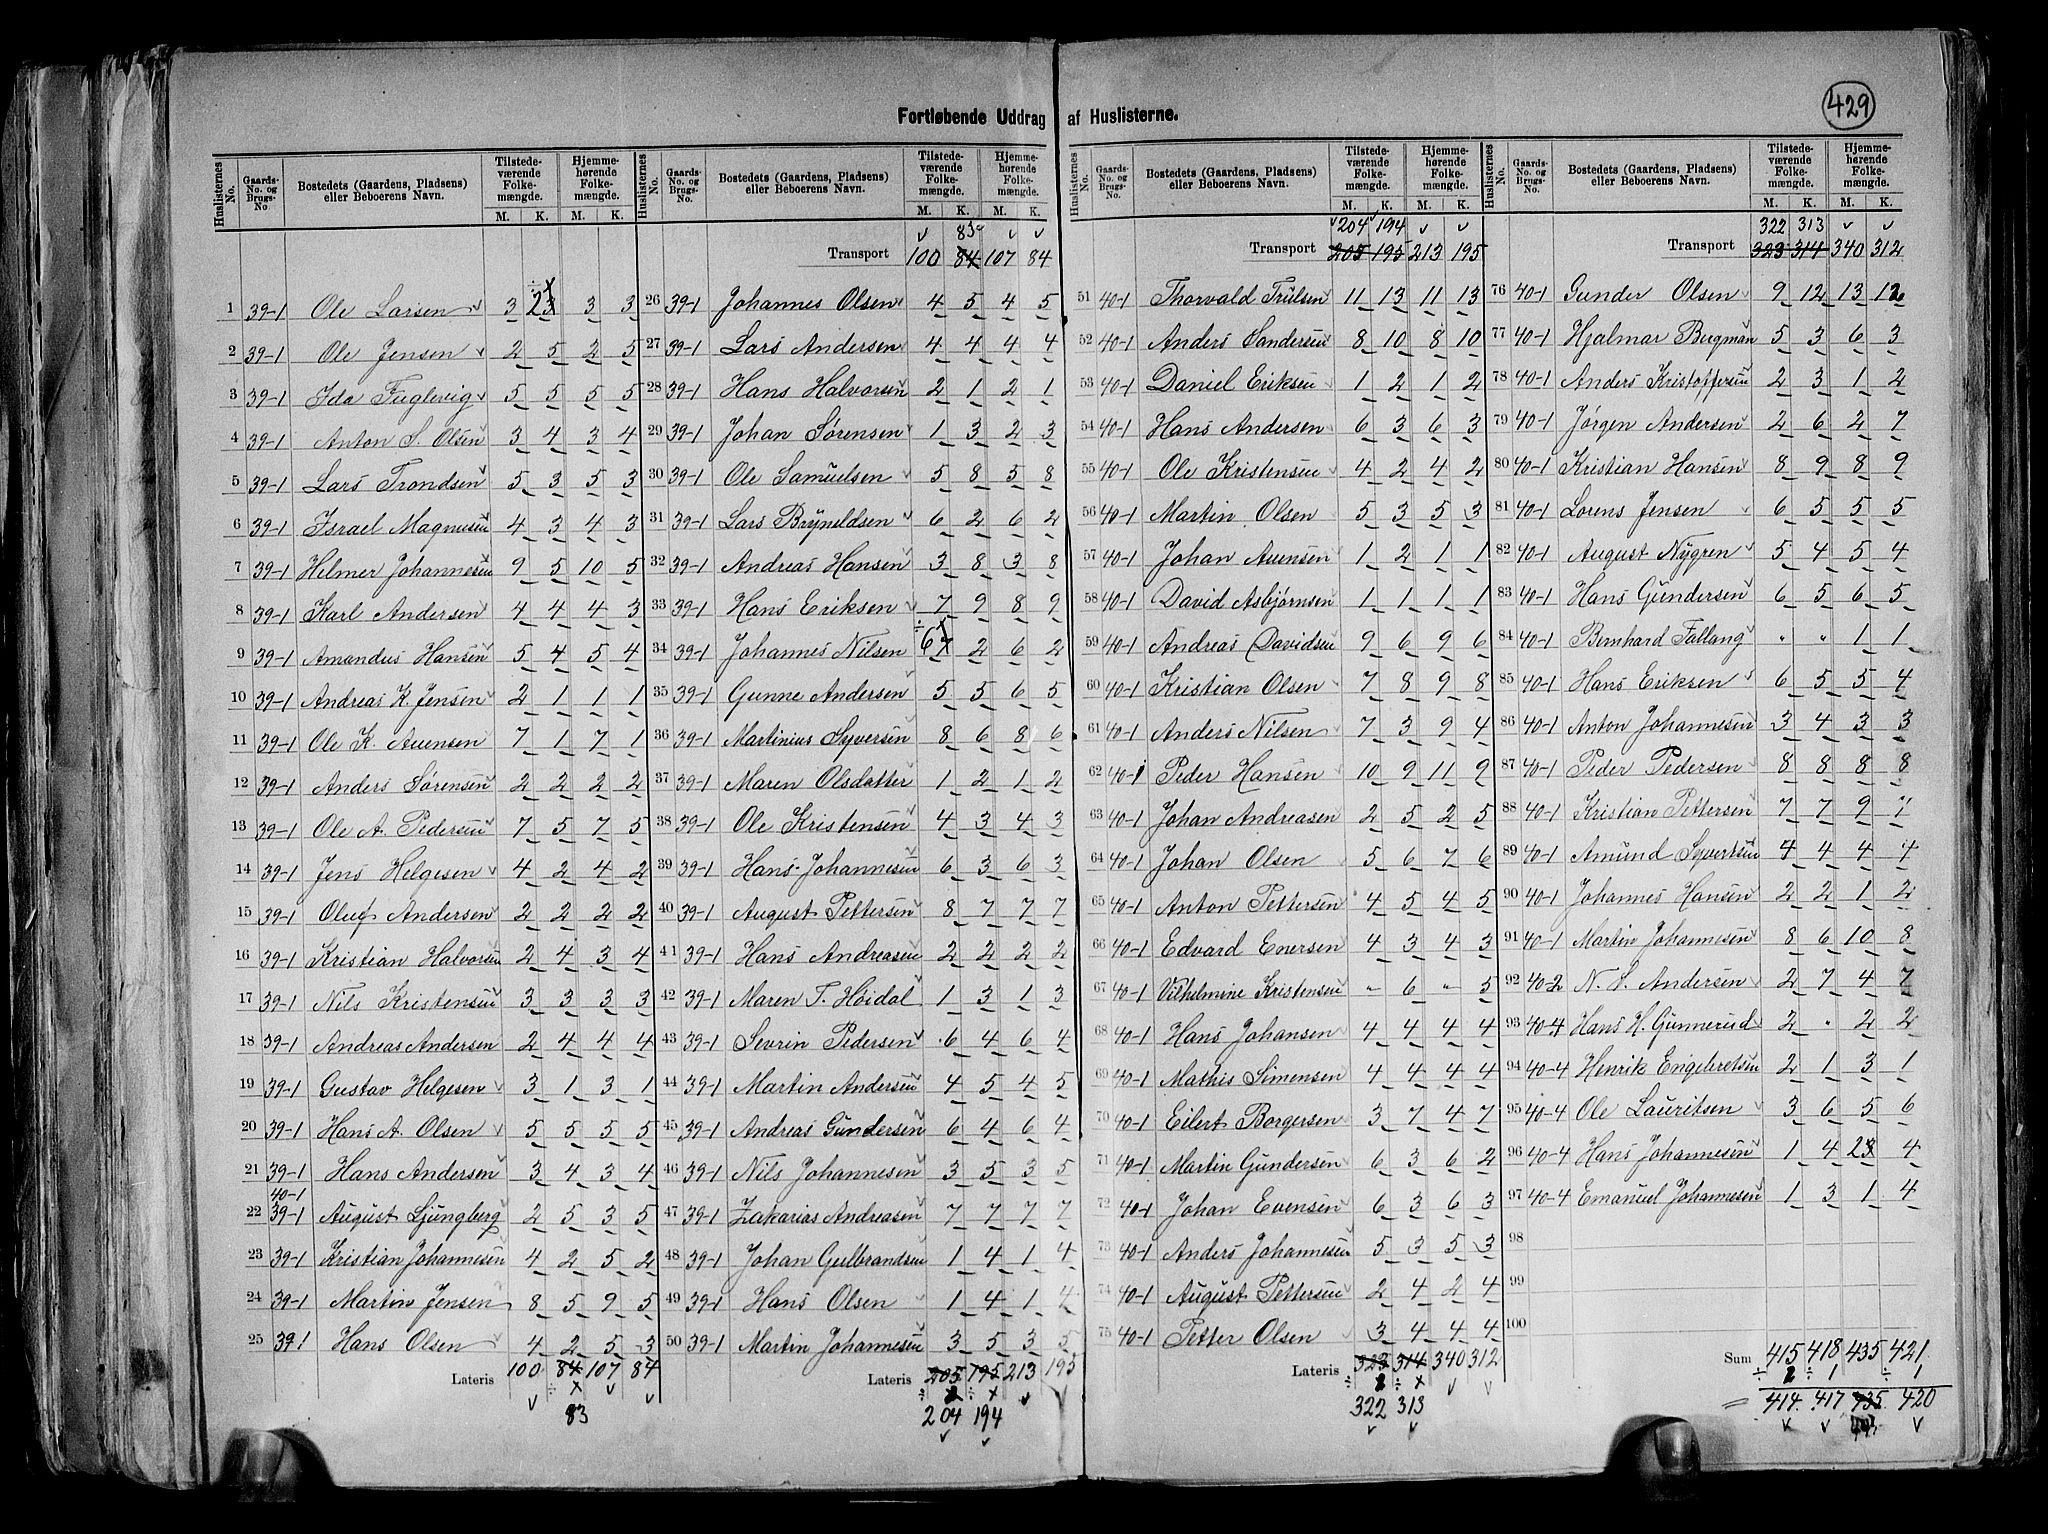 429
Fortløbende Uddrag af Huslisterne.
Huslisternes No. | Gaards-No. og Brugs-No. | Bostedets (Gaardens, Pladsens) eller Beboerens Navn. | Tilstede-værende Folke-mængde. M. K. | Hjemme-hørende Folke-mængde. M. K.
1 39-1 Ole Larsen 3 2 3 3
2 39-1 Ole Jensen 2 5 2 5
3 39-1 Ida Fuglevig 5 5 5 5
4 39-1 Anton S. Olsen 3 4 3 4
5 39-1 Lars Trondsen 5 3 5 3
6 39-1 Israel Magnusen 4 3 4 3
7 39-1 Helmer Johannesen 9 5 10 5
8 39-1 Karl Andersen 4 4 4 3
9 39-1 Amandus Hansen 5 4 5 4
10 39-1 Andreas K. Jensen 2 1 1 1
11 39-1 Ole K. Auensen 7 1 7 1
12 39-1 Anders Sørensen 2 2 2 2
13 39-1 Ole A. Pedersen 7 5 7 5
14 39-1 Jens Helgesen 4 2 4 2
15 39-1 Oluf Andersen 2 2 2 2
16 39-1 Kristian Halvorsen 2 4 3 4
17 39-1 Nils Kristensen 3 3 3 3
18 39-1 Andreas Andersen 2 4 4 4
19 39-1 Gustav Helgesen 3 1 3 1
20 39-1 Hans A. Olsen 5 5 5 5
21 39-1 Hans Andersen 3 4 3 4
40-1
22 39-1 August Ljungberg 2 5 3 5
23 39-1 Kristian Johannesen 4 2 5 2
24 39-1 Martin Jensen 8 5 9 5
25 39-1 Hans Olsen 4 2 5 3
Lateris 100 84 107 84
83
Huslisternes No. | Gaards-No. og Brugs-No. | Bostedets (Gaardens, Pladsens) eller Beboerens Navn. | Tilstede-værende Folke-mængde. M. K. | Hjemme-hørende Folke-mængde. M. K.
83
Transport 100 84 107 84
26 39-1 Johannes Olsen 4 5 4 5
27 39-1 Lars Andersen 4 4 4 4
28 39-1 Hans Halvorsen 2 1 2 1
29 39-1 Johan Sørensen 1 3 2 3
30 39-1 Ole Samuelsen 5 8 5 8
31 39-1 Lars Brynildsen 6 2 6 2
32 39-1 Andreas Hansen 3 8 3 8
33 39-1 Hans Eriksen 7 9 8 9
34 39-1 Johannes Nilsen 6 2 6 2
35 39-1 Gunne Andersen 5 5 6 5
36 39-1 Martinius Syversen 8 6 8 6
37 39-1 Maren Olsdatter 1 2 1 2
38 39-1 Ole Kristensen 4 3 4 3
39 39-1 Hans Johannesen 6 3 6 3
40 39-1 August Pettersen 8 7 7 7
41 39-1 Hans Andreasen 2 2 2 2
42 39-1 Maren T. Høidal 1 3 1 3
43 39-1 Sevrin Pedersen 6 4 6 4
44 39-1 Martin Andersen 4 5 4 5
45 39-1 Andreas Gundersen 6 4 6 4
46 39-1 Nils Johannesen 3 5 3 5
47 39-1 Zakarias Andreasen 7 7 7 7
48 39-1 Johan Gulbrandsen 1 4 1 4
49 39-1 Hans Olsen 1 4 1 4
50 39-1 Martin Johannesen 3 5 3 5
Lateris 205 195 213 195
204 194
Huslisternes No. | Gaards-No. og Brugs-No. | Bostedets (Gaardens, Pladsens) eller Beboerens Navn. | Tilstede-værende Folke-mængde. M. K. | Hjemme-hørende Folke-mængde. M. K.
204 194
Transport 205 195 213 195
51 40-1 Thorvald Trulsen 11 13 11 13
52 40-1 Anders Sandersen 8 10 8 10
53 40-1 Daniel Eriksen 1 2 1 2
54 40-1 Hans Andersen 6 3 6 3
55 40-1 Ole Kristensen 4 2 4 2
56 40-1 Martin Olsen 5 3 5 3
57 40-1 Johan Auensen 1 2 1 1
58 40-1 David Asbjørnsen 1 1 1 1
59 40-1 Andreas Davidsen 9 6 9 6
60 40-1 Kristian Olsen 7 8 9 8
61 40-1 Anders Nilsen 7 3 9 4
62 40-1 Peder Hansen 10 9 11 9
63 40-1 Johan Andreasen 2 5 2 5
64 40-1 Johan Olsen 5 6 7 6
65 40-1 Anton Pettersen 4 5 4 5
66 40-1 Edvard Eversen 4 3 4 3
67 40-1 Vilhelmine Kristensen " 6 " 5
68 40-1 Hans Johansen 4 4 4 4
69 40-1 Mathis Simensen 4 4 4 4
70 40-1 Eilert Borgersen 3 7 4 7
71 40-1 Martin Gundersen 6 3 6 2
72 40-1 Johan Evensen 6 3 6 3
73 40-1 Anders Johannesen 5 3 5 3
74 40-1 August Pettersen 2 4 2 4
75 40-1 Petter Olsen 3 4 4 4
Lateris 323 314 340 312
322 313
Huslisternes No. | Gaards-No. og Brugs-No. | Bostedets (Gaardens, Pladsens) eller Beboerens Navn. | Tilstede-værende Folke-mængde. M. K. | Hjemme-hørende Folke-mængde. M. K.
322 313
Transport 323 314 340 312
76 40-1 Gunder Olsen 9 12 13 12
77 40-1 Hjalmar Bergman 5 3 6 3
78 40-1 Anders Kristoffersen 2 3 1 2
79 40-1 Jørgen Andersen 2 6 2 7
80 40-1 Kristian Hansen 8 9 8 9
81 40-1 Lorens Jensen 6 5 5 5
82 40-1 August Nygren 5 4 5 4
83 40-1 Hans Gundersen 6 5 6 5
84 40-1 Bernhard Fallang " " 1 1
85 40-1 Hans Eriksen 6 5 5 4
86 40-1 Anton Johannesen 3 4 3 3
87 40-1 Peder Pedersen 8 8 8 8
88 40-1 Kristian Pettersen 7 7 9 7
89 40-1 Amund Syvertsen 4 4 4 4
90 40-1 Johannes Hansen 2 2 1 2
91 40-1 Martin Johannesen 8 6 10 8
92 40-2 N. S. Andersen 2 7 4 7
93 40-4 Hans H. Gunnerud 2 " 2 2
94 40-4 Henrik Engebretsen 2 1 3 1
95 40-4 Ole Lauritsen 3 6 5 6
96 40-4 Hans Johannesen 1 4 2 4
97 40-4 Emanuel Johannesen 1 3 1 4
98
99
100
Sum 415 418 435 421
÷ 2 ÷ 1 ÷ 1
= 414 417 435 420